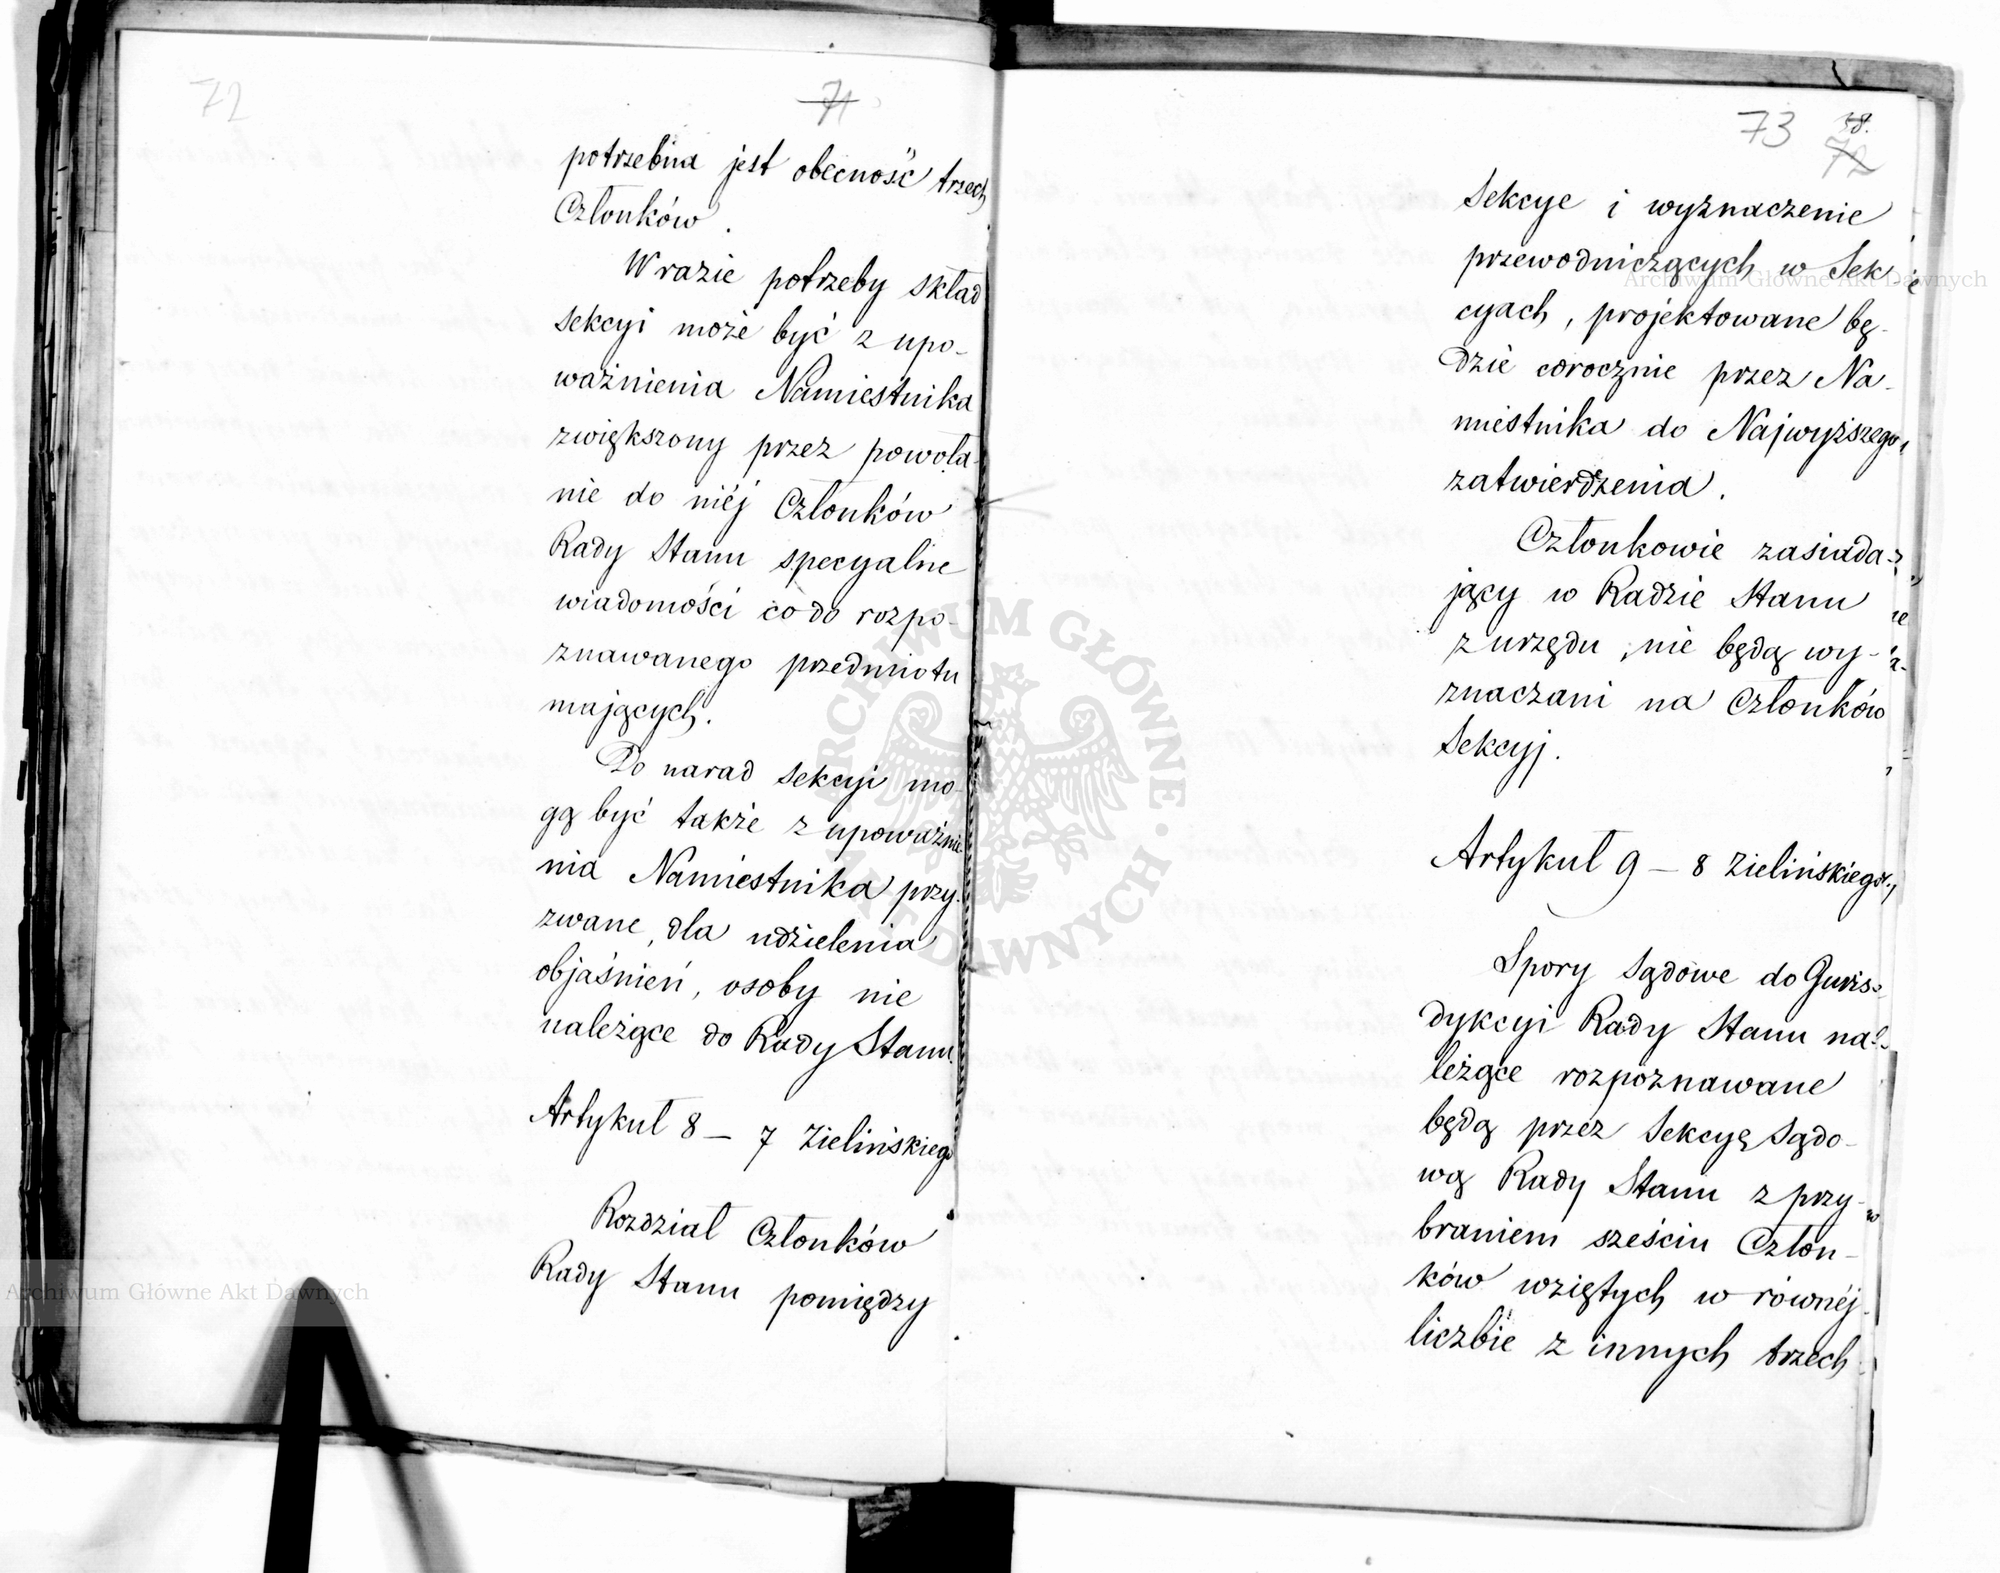 72
71
potrzebna jest obecność trzech
Członków.
W razie potrzeby skład
sekcyi może być z upo-
ważnienia Namiestnika
zwiększony przez powoła-
nie do niéj Członków
Rady Stanu specyalne
wiadomości co do rozpo-
znawanego przedmiotu
mających.
Do narad sekcyi mo-
gą być także z upoważnie-
nia Namiestnika przy-
zwane, dla udzielenia
objaśnień, osoby nie
należące do Rady Stanu.
Artykuł 8 – 7 Zielińskiego
Rozdział Członków
Rady Stanu pomiędzy
73
38.
72
Sekcye i wyznaczenie
przewodniczących w Sek
cyach, projektowane bę-
dzie corocznie przez Na-
miestnika do Najwyższego
zatwierdzenia.
Członkowie zasiada-
jący w Radzie Stanu
z urzędu, nie będą wy-
znaczani na Członków
Sekcyj.
Artykuł 9 – 8 Zielińskiego
Spory sądowe do Juris-
dykcyi Rady Stanu na-
leżące rozpoznawane
będą przez Sekcyę Sądo-
wą Rady Stanu z przy-
braniem sześciu Człon-
ków wziętych w równéj
liczbie z innych trzech
Archiwum Główne Akt Dawnych
Archiwum Główne Akt Dawnych
ARCHIWUM GŁÓWNE AKT DAWNYCH